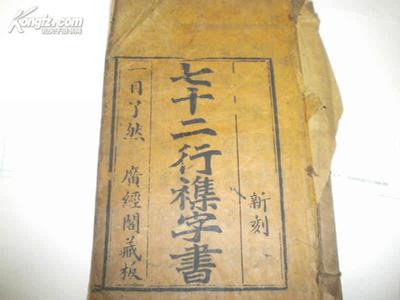 Kongfz.com
孔夫子旧书网
新刻
七十二行襍字書
一目了然 廣經閣藏板